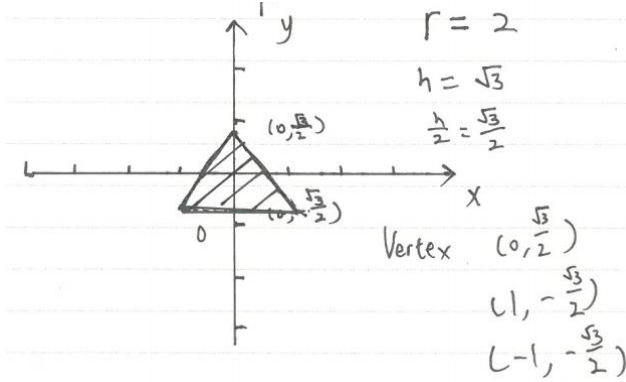 y
r = 2
h = √3
h/2 = √3/2
(0, √3/2)
x
(0, -√3/2)
0
Vertex (0, √3/2)
(1, -√3/2)
(-1, -√3/2)